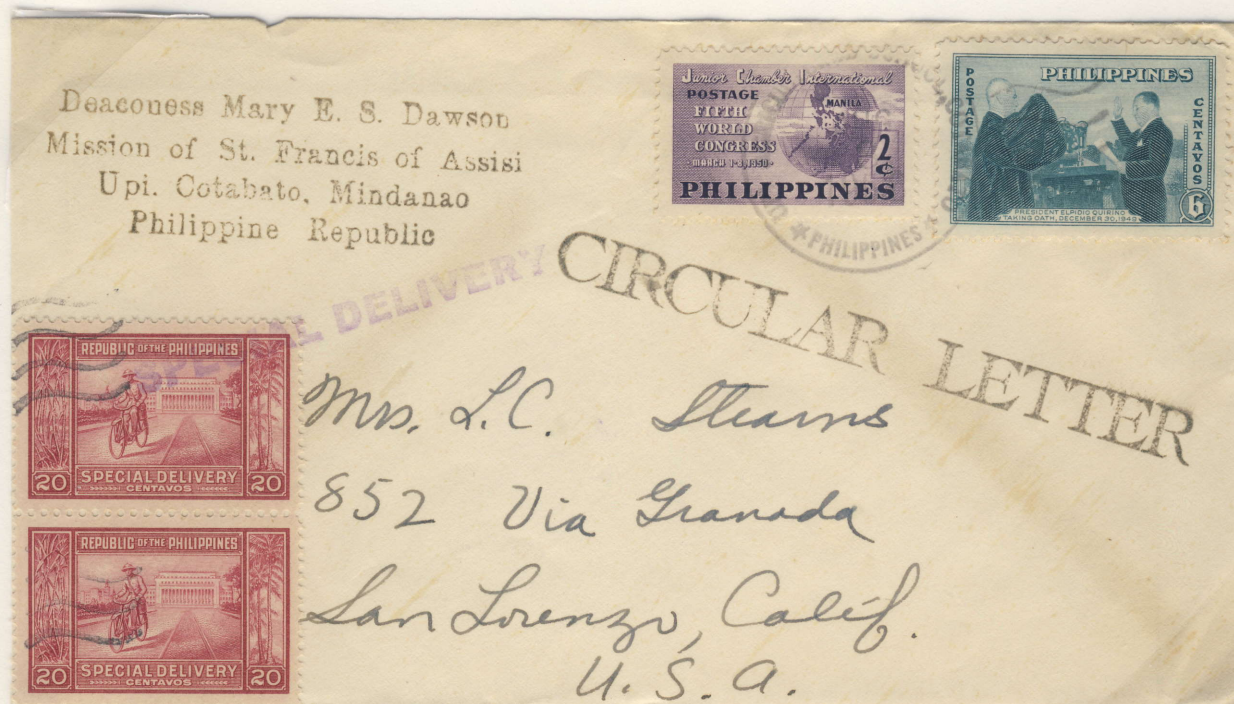 Deaconess Mary E. S. Dawson
Mission of St. Francis of Assisi
Upi. Cotabato, Mindanao
Philippine Republic
Junior Chamber International
POSTAGE
MANILA
FIFTH
WORLD
CONGRESS
-MARCH 1-8, 1950-
2¢
PHILIPPINES
POSTAGE
PHILIPPINES
CENTAVOS
6
PRESIDENT ELPIDIO QUIRINO
TAKING OATH, DECEMBER 30, 1949
PHILIPPINES
SPECIAL DELIVERY
CIRCULAR LETTER
REPUBLIC OF THE PHILIPPINES
20 SPECIAL DELIVERY 20
CENTAVOS
REPUBLIC OF THE PHILIPPINES
20 SPECIAL DELIVERY 20
CENTAVOS
Mrs. L.C. Stearns
852 Via Granada
San Lorenzo, Calif.
U. S. A.